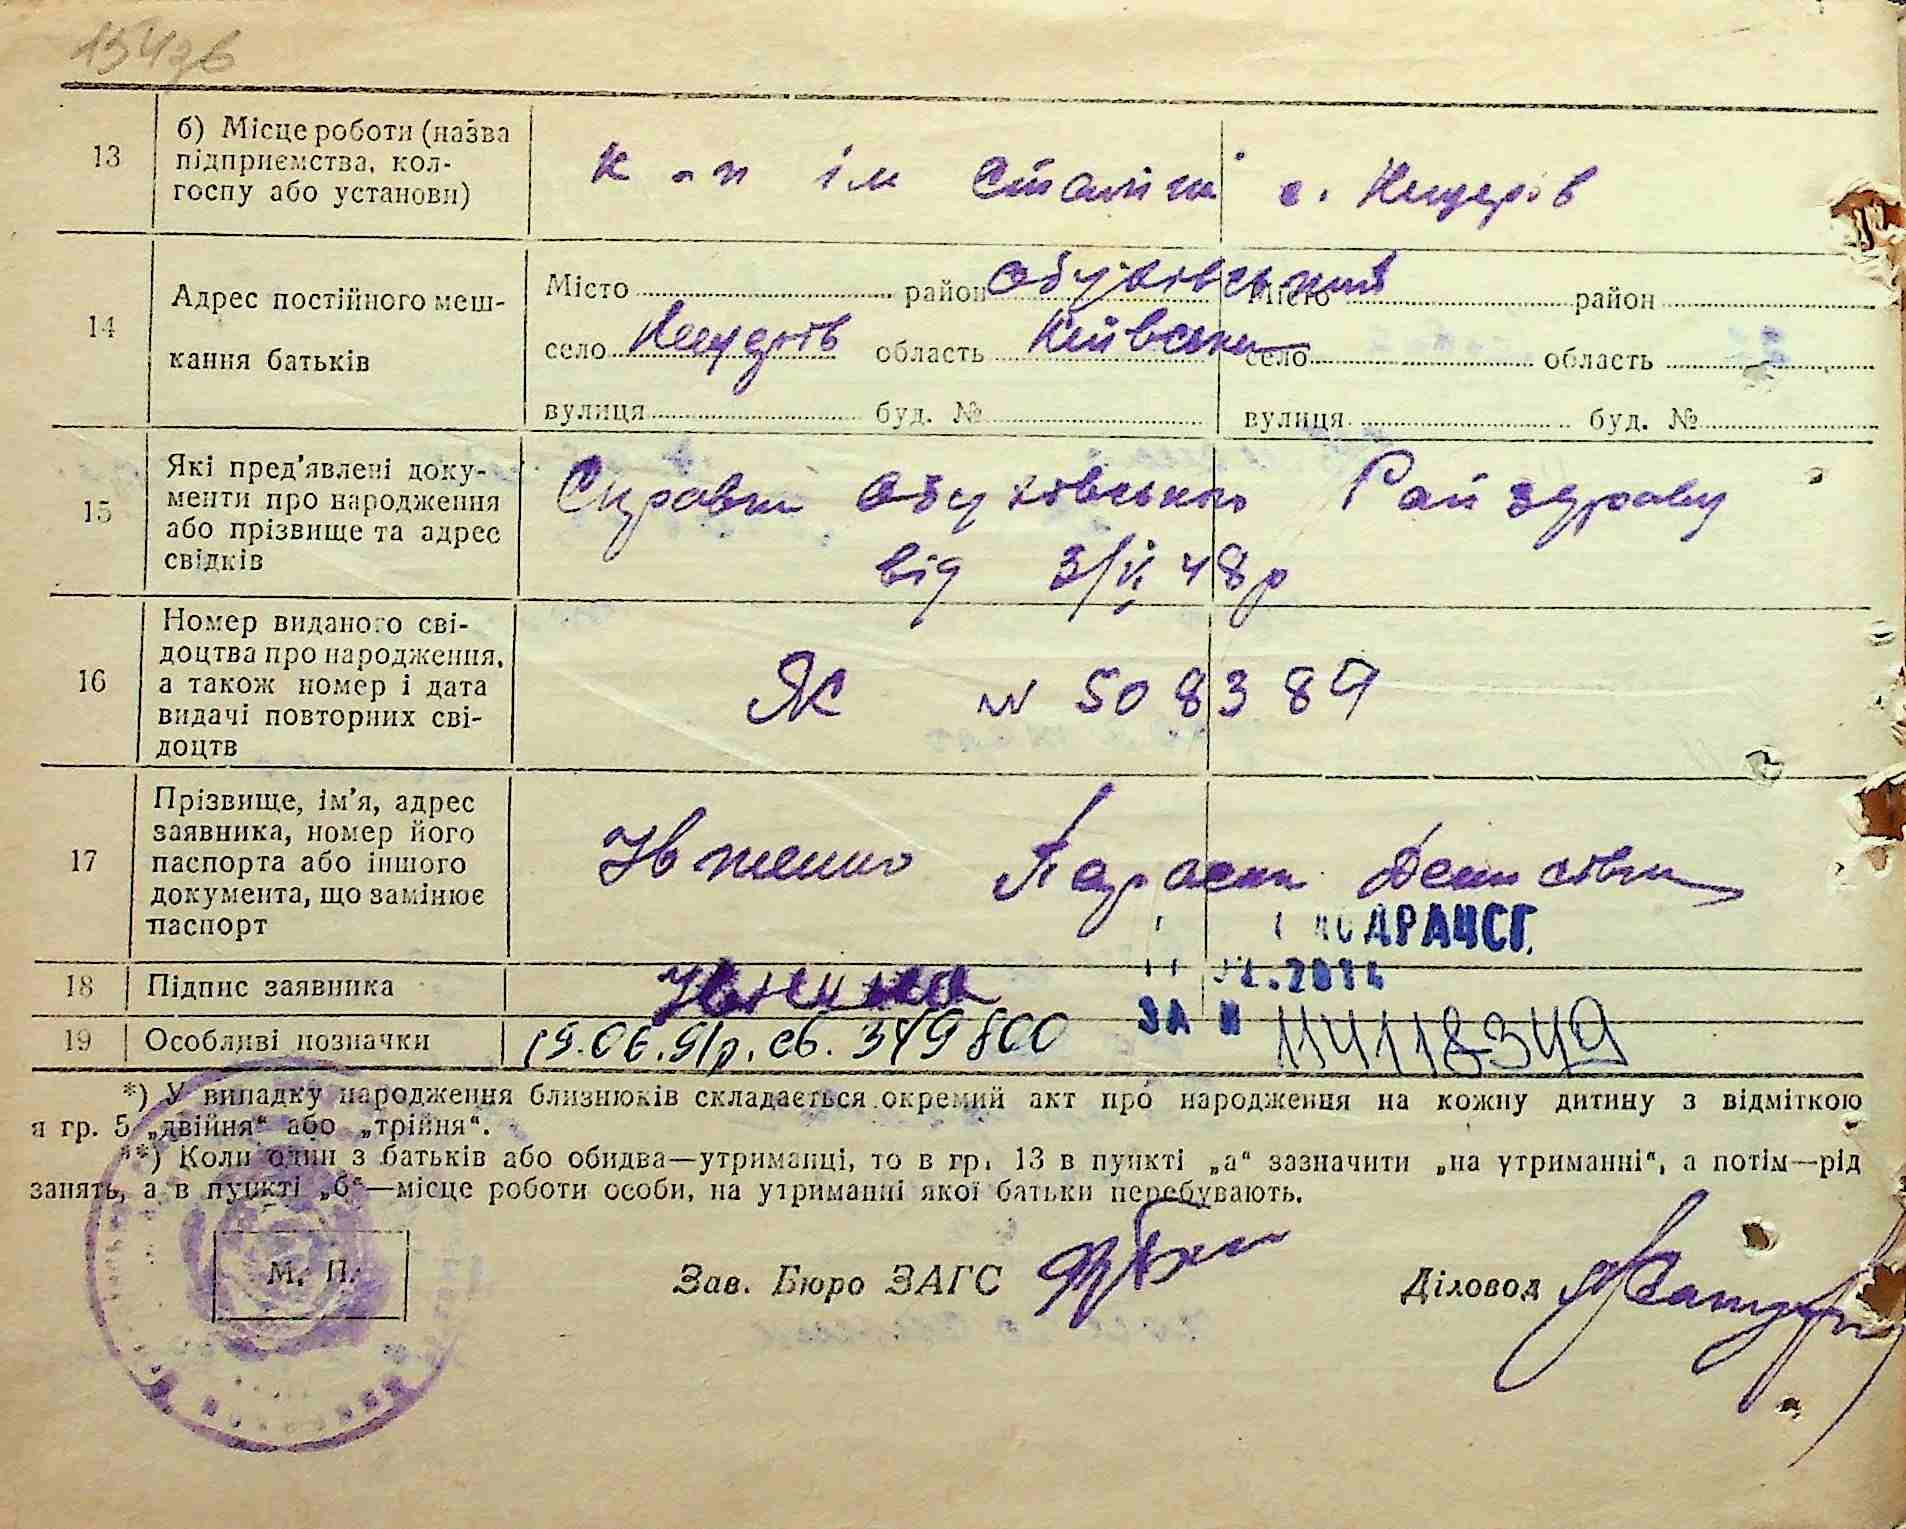 134зв
13
б) Місце роботи (назва
підприємства, кол-
госпу або установи)
к-п ім Сталіна с. Нещерів
14
Адрес постійного меш-
кання батьків
Місто район Обухівський Місто район
село Нещерів область Київська село область
вулиця буд. № вулиця буд. №
15
Які пред'явлені доку-
менти про народження
або прізвище та адрес
свідків
Справки Обухівського Райздраву
від 3/VI 48р
16
Номер виданого сві-
доцтва про народження,
а також номер і дата
видачі повторних сві-
доцтв
ЯК № 508389
17
Прізвище, ім'я, адрес
заявника, номер його
паспорта або іншого
документа, що замінює
паспорт
Івженко Параски Денисівни
ДРАЦСГ
.2014
18
Підпис заявника
Івженко
ЗА №
1141118349
19
Особливі позначки
19.06.91р. св. 349800
*) У випадку народження близнюків складається окремий акт про народження на кожну дитину з відміткою
я гр. 5 „двійня“ або „трійня“.
**) Коли один з батьків або обидва—утриманці, то в гр. 13 в пункті „а“ зазначити „на утриманні“, а потім—рід
занять, а в пункті „б“—місце роботи особи, на утриманні якої батьки перебувають.
М. П.
Зав. Бюро ЗАГС
Діловод